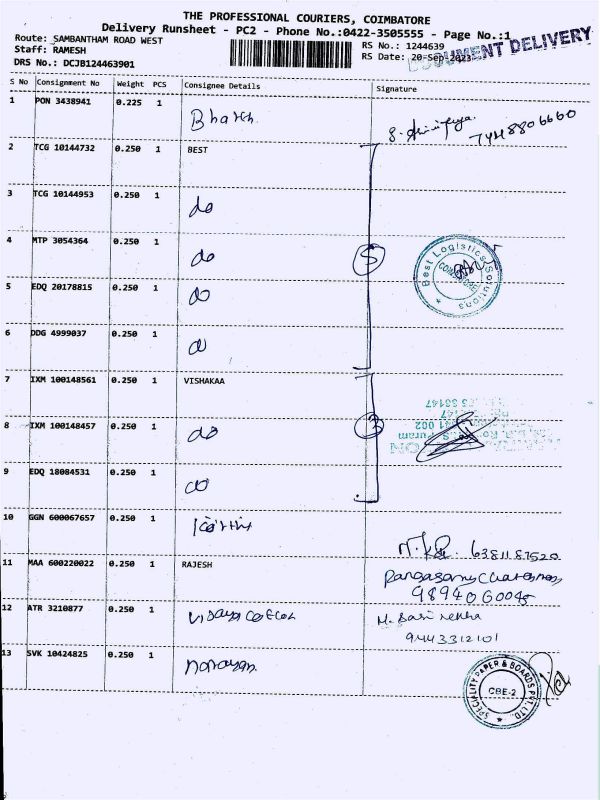 THE PROFESSIONAL COURIERS, COIMBATORE
Delivery Runsheet - PC2 - Phone No.:0422-3505555 - Page No.:1
Route: SAMBANTHAM ROAD WEST
Staff: RAMESH
DRS No.: DCJB124463901
RS No.: 1244639
RS Date: 20-Sep-2023
DOCUMENT DELIVERY
S No Consignment No Weight PCS Consignee Details Signature
1 PON 3438941 0.225 1 7448806660
2 TCG 10144732 0.250 1 BEST
3 TCG 10144953 0.250 1 do
4 MTP 3054364 0.250 1 do 5
Best Logistics Solutions
COIMBATORE
5 EDQ 20178815 0.250 1 do
6 DDG 4999037 0.250 1
7 IXM 100148561 0.250 1 VISHAKAA
8 IXM 100148457 0.250 1 do 3
9 EDQ 18084531 0.250 1 do
10 GGN 600067657 0.250 1
6381187520
11 MAA 600220022 0.250 1 RAJESH
12 ATR 3210877 0.250 1 M. Sasi rekha
9443312101
13 SVK 10424825 0.250 1 narayan
SPECIALITY PAPER & BOARDS PVT. LTD.
CBE-2